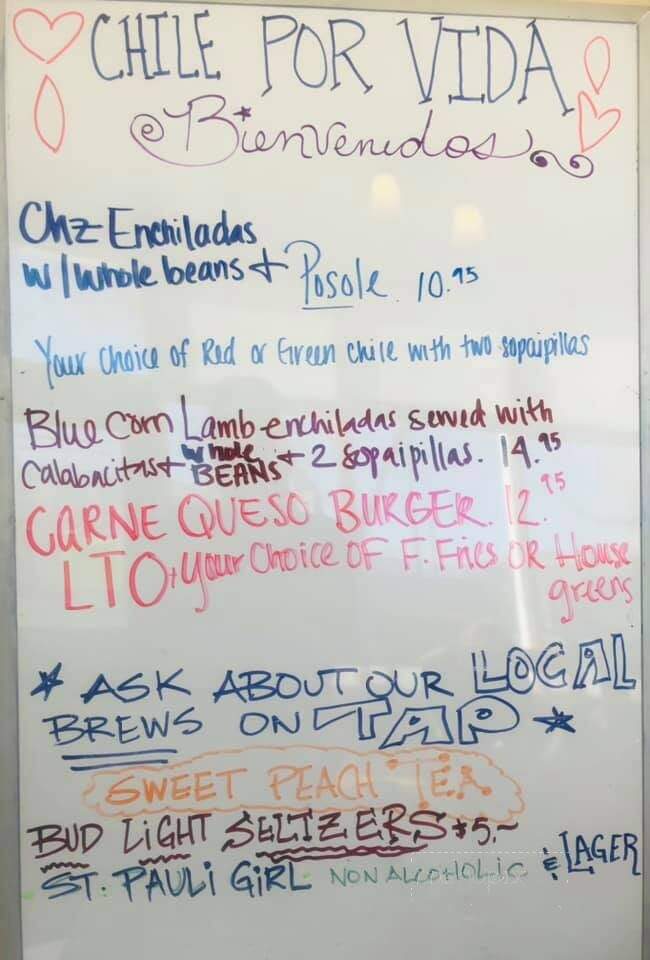 CHILE POR VIDA
Bienvenidos
Chz Enchiladas
w/whole beans + Posole. 10.95
Your choice of Red or Green chile with two sopaipillas
Blue Corn Lamb enchiladas served with
Calabacitas + whole BEANS + 2 sopaipillas. 14.95
CARNE QUESO BURGER. 12.95
LTO + your Choice OF F. Fries OR House
greens
* ASK ABOUT OUR LOCAL
BREWS ON TAP *
SWEET PEACH TEA
BUD LIGHT SELTZERS $5.~
ST. PAULI GIRL NON ALCOHOLIC & LAGER